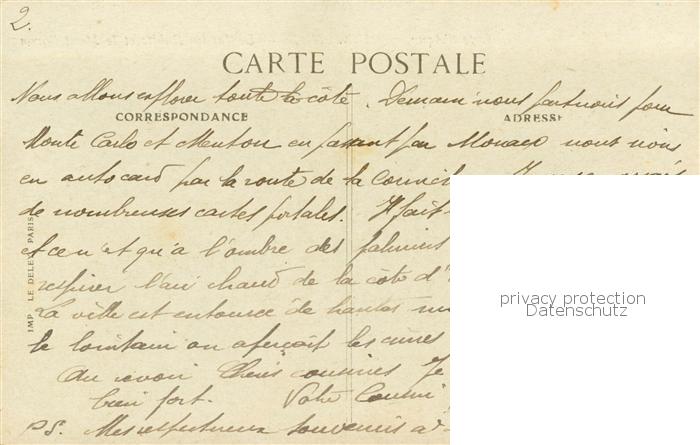 2.
CARTE POSTALE
Nous allons explorer toute la côte. Demain nous partirons pour
CORRESPONDANCE
ADRESSE
Monte Carlo et Menton en passant par Monaco nous
en autocar par la route de la
de nombreuses cartes postales. Il fait
et ce n'est qu'à l'ombre des palmiers
respirer l'air chaud de la côte d'
La ville est entourée de hautes
le lointain on aperçoit les cimes
Au revoir Chers cousins Je
bien fort. Votre Cousin
PS. Mes respectueux souvenirs à
IMP. LE DELEY, PARIS
privacy protection
Datenschutz